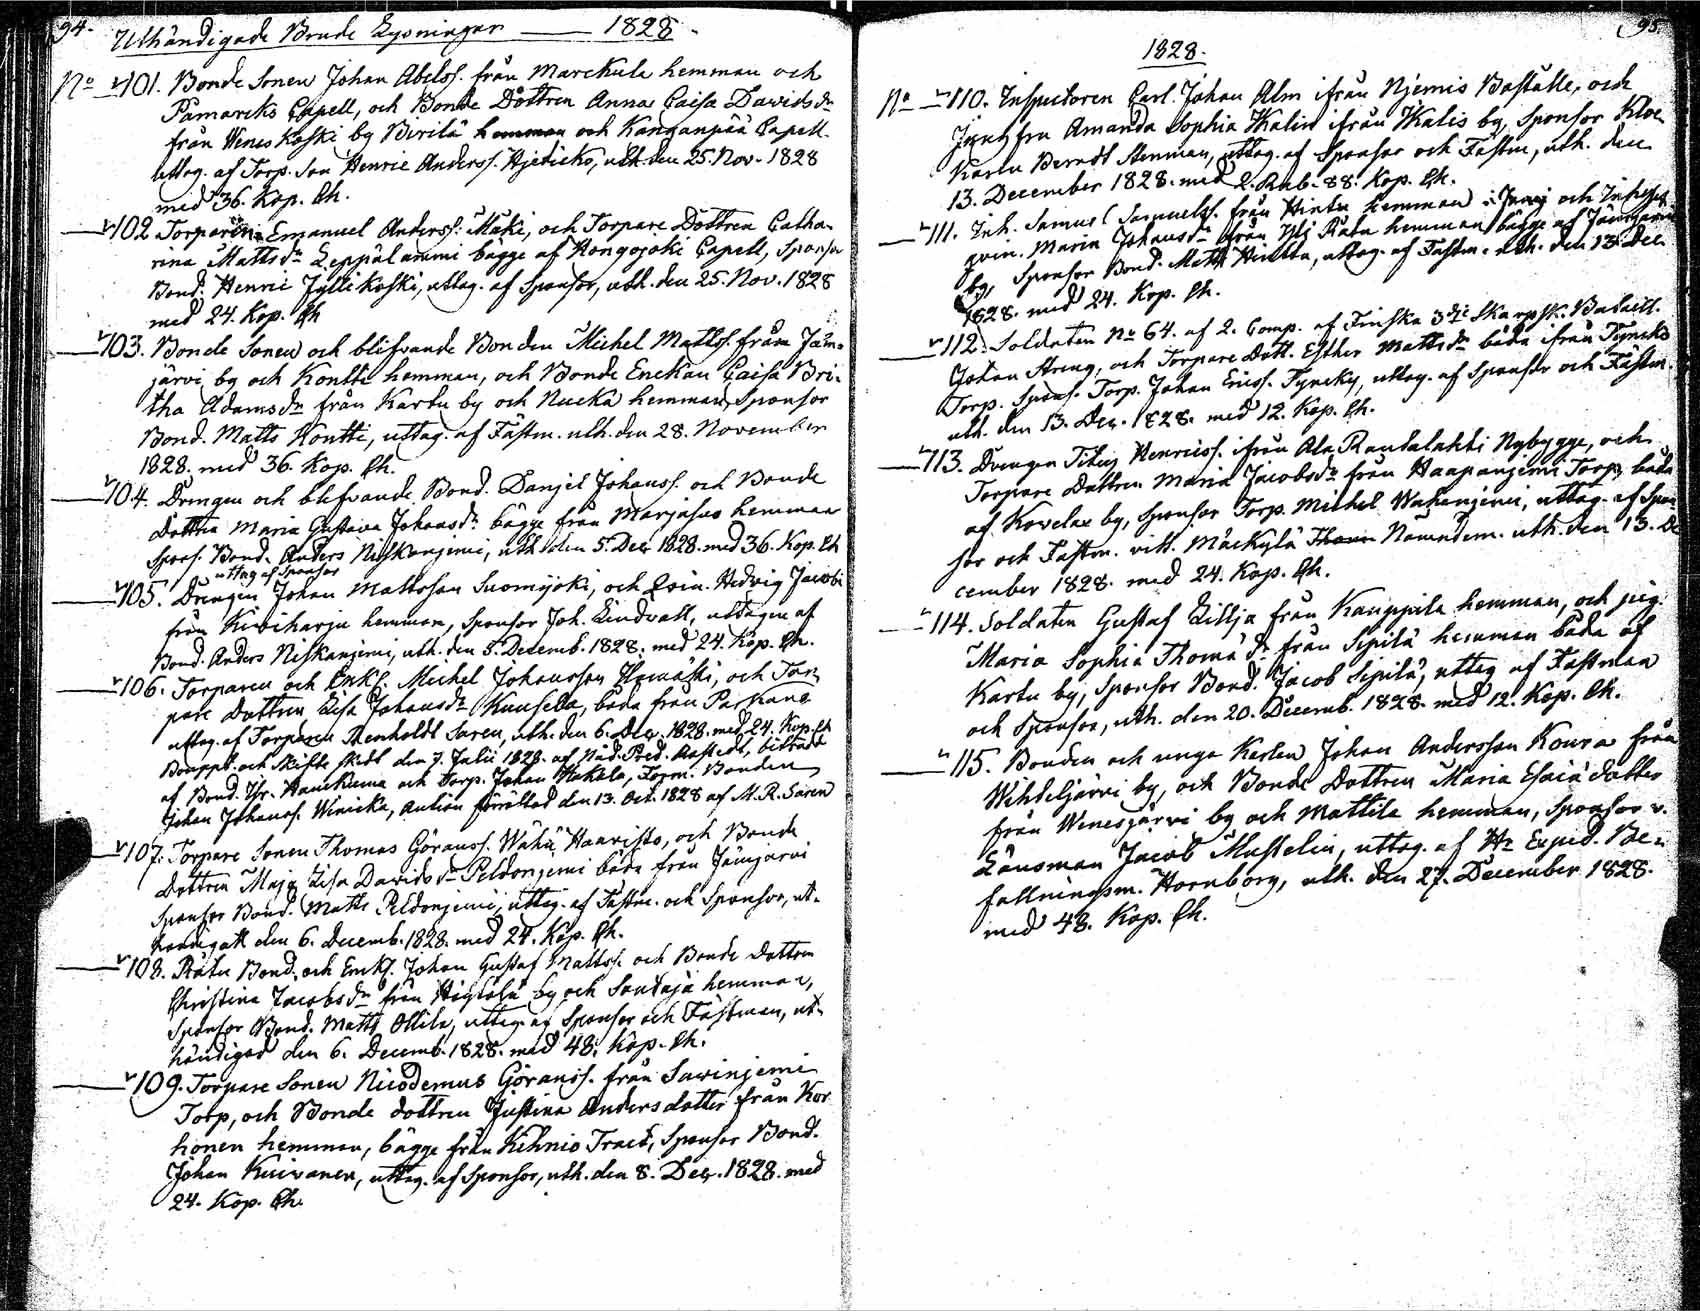 94.
Uthändigade Brude Lysningar — 1828.
No 101. Bonde Sonen Johan Abelss. från Marckula hemman och
Pämarcks Capell, och Bonde Dottren Anna Caisa Davids dr
från Weneskoski by Birilä hemman och Kanganpää Capell.
uttag. af Torp. Son Henric Anderss. uth. den 25. Nov. 1828
med 36. Kop. Ch.
102 Torparen Emanuel Anderss. Mäki, och Torpare Dottren Catha-
rina Matts dr Leppälammi bägge af Hongojoki Capell, Sponsor
Bond. Henric Jyllikoski, uttag. af Sponsor, uth. den 25. Nov. 1828
med 24. Kop. Ch
103. Bonde Sonen och blifvande Bonden Michel Mattss. från Jäm-
järvi by och Kontti hemman, och Bonde Enckan Caisa Bri-
tha Adams dr från Kartu by och Nucka hemman, Sponsor
Bond. Matts Kontti, uttag. af Fästm. uth. den 28. November
1828. med 36. Kop. Ch.
104. Drengen och blifvande Bond. Danjel Johanss. och Bonde
Dottren Maria Gustava Johans dr bägge från Marjasuo hemman
Spons. Bond. Anders Niskanjemi, uth. den 5. Dec. 1828. med 36. Kop. Ch
uttag af Sponsor
105. Drengen Johan Mattsson Suomijoki, och Qvin. Hedvig Jacobs
från Kiviharju hemman, Sponsor Joh. Lindvall, uttagen af
Bond. Anders Niskanjemi, uth. den 5. Decemb. 1828. med 24. Kop. Ch.
106. Torparen och Enkl. Michel Johansson och Tor-
pare Dottren Lisa Johans dr Kuusela, båda från Parkano
uttag. af Torparen Renholdt Saren, uth. den 6. Dec. 1828. med 24. Kop. Ch
Bouppt. och Skifte skedt den 7. Julii 1828. af Nåd. Pred. biträdd
af Bond. Hr. och Torp. Johan Hakala, Bonden
Johan Johanss. Winicka, Aution förrättad den 13. Oct. 1828 af M. R. Saren
107. Torpare Sonen Thomas Göranss. Wähä Haavisto, och Bonde
Dottren Maja Lisa Davids dr Peldonjemi båda från Jämijärvi
Sponsor Bond. Matts Peldonjemi, uttag. af Fästm. och Sponsor, ut-
händigatt den 6. Decemb. 1828. med 24. Kop. Ch.
108. Rätu Bond. och Enckl. Johan Gustaf Mattss. och Bonde Dottren
Christina Jacobs dr från by och hemman,
Sponsor Bond. Matts Ollila, uttag. af Sponsor och Fästman, ut-
händigad den 6. Decemb. 1828. med 48. Kop. Ch.
109. Torpare Sonen Nicodemus Göranss. från Savinjemi
Torp, och Bonde dottren Justina Andersdotter från Kor-
honen hemman, bägge från Kihnio Tract, Sponsor Bond.
Johan Kuivanen, uttag. af Sponsor, uth. den 8. Dec. 1828. med
24. Kop. Ch.
95.
1828.
No 110. Inspectoren Carl Johan Alm ifrån Njemis Boställe, och
Jungfru Amanda Sophia Walin ifrån Walis by, Sponsor Kloc-
karen Berndt Stenman, uttag. af Sponsor och Fästm, uth. den
13. December 1828. med 2. Rub. 88. Kop. Ch.
111. Inh. Samuel Samuelss. från Hintu hemman i och Inhyses
qvin. Maria Johans dr från Yli Rätu hemman bägge af Jämijärvi
by, Sponsor Bond. Matts Hinttu, uttag. af Fästm. uth. den 13. Dec.
1828. med 24. Kop. Ch.
112. Soldaten No 64. af 2. Comp. af Finska 3dje Skarpsk. Bataill.
Johan Streng, och Torpare Dott. Esther Matts dr båda ifrån Tyncko
Torp. Spons. Torp. Johan Ericss. Tyncky, uttag. af Sponsor och Fästm.
uth. den 13. Dec. 1828. med 12. Kop. Ch.
113. Drengen Titus Henricss. ifrån Ala Rautalahti Nybygge, och
Torpare Dottren Maria Jacobs dr från Haapanjemi Torp, båda
af Kovelax by, Sponsor Torp. Michel Wahanjemi, uttag. af Spon-
sor och Fästm. vitt. Mäckylä Nämndem. uth. den 13. De-
cember 1828. med 24. Kop. Ch.
114. Soldaten Gustaf Lillja från Kauppila hemman, och pig.
Maria Sophia Thomä dr från Sipilä hemman båda af
Kartu by, Sponsor Bond. Jacob Sipilä, uttag af Fästman
och Sponsor, uth. den 20. Decemb. 1828. med 12. Kop. Ch.
115. Bonden och unga Karlen Johan Andersson Koura från
Wihteljärvi by, och Bonde Dottren Maria Esaiä dotter
från Wenesjärvi by och Mattila hemman, Sponsor v.
Länsman Jacob Mustelin, uttag. af Hr Exped. Be-
fallningsm. Hornborg, uth. den 27. December 1828.
med 48. Kop. Ch.